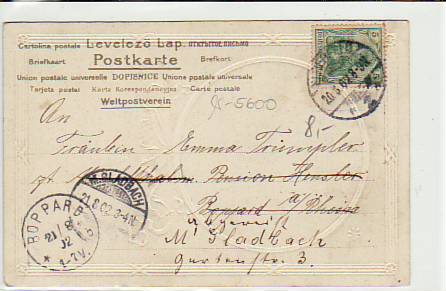 Cartolina postale Levelező Lap. ОТКРЫТОЕ ПИСЬМО
Briefkaart Postkarte Brefkort
Union postale universelle DOPISNICE Unione postale universale
Tarjeta postal Karta Korespondencyjna Carte postale
Weltpostverein
5600
8,-
An
Fräulein Emma Trimpler
zt. Pension Hensler
Boppard a/Rhein
Abgereist
M. Gladbach
Gartenstr. 3.
M. GLADBACH
21.8.02. 3-4N
BOPPARD
21 8
02